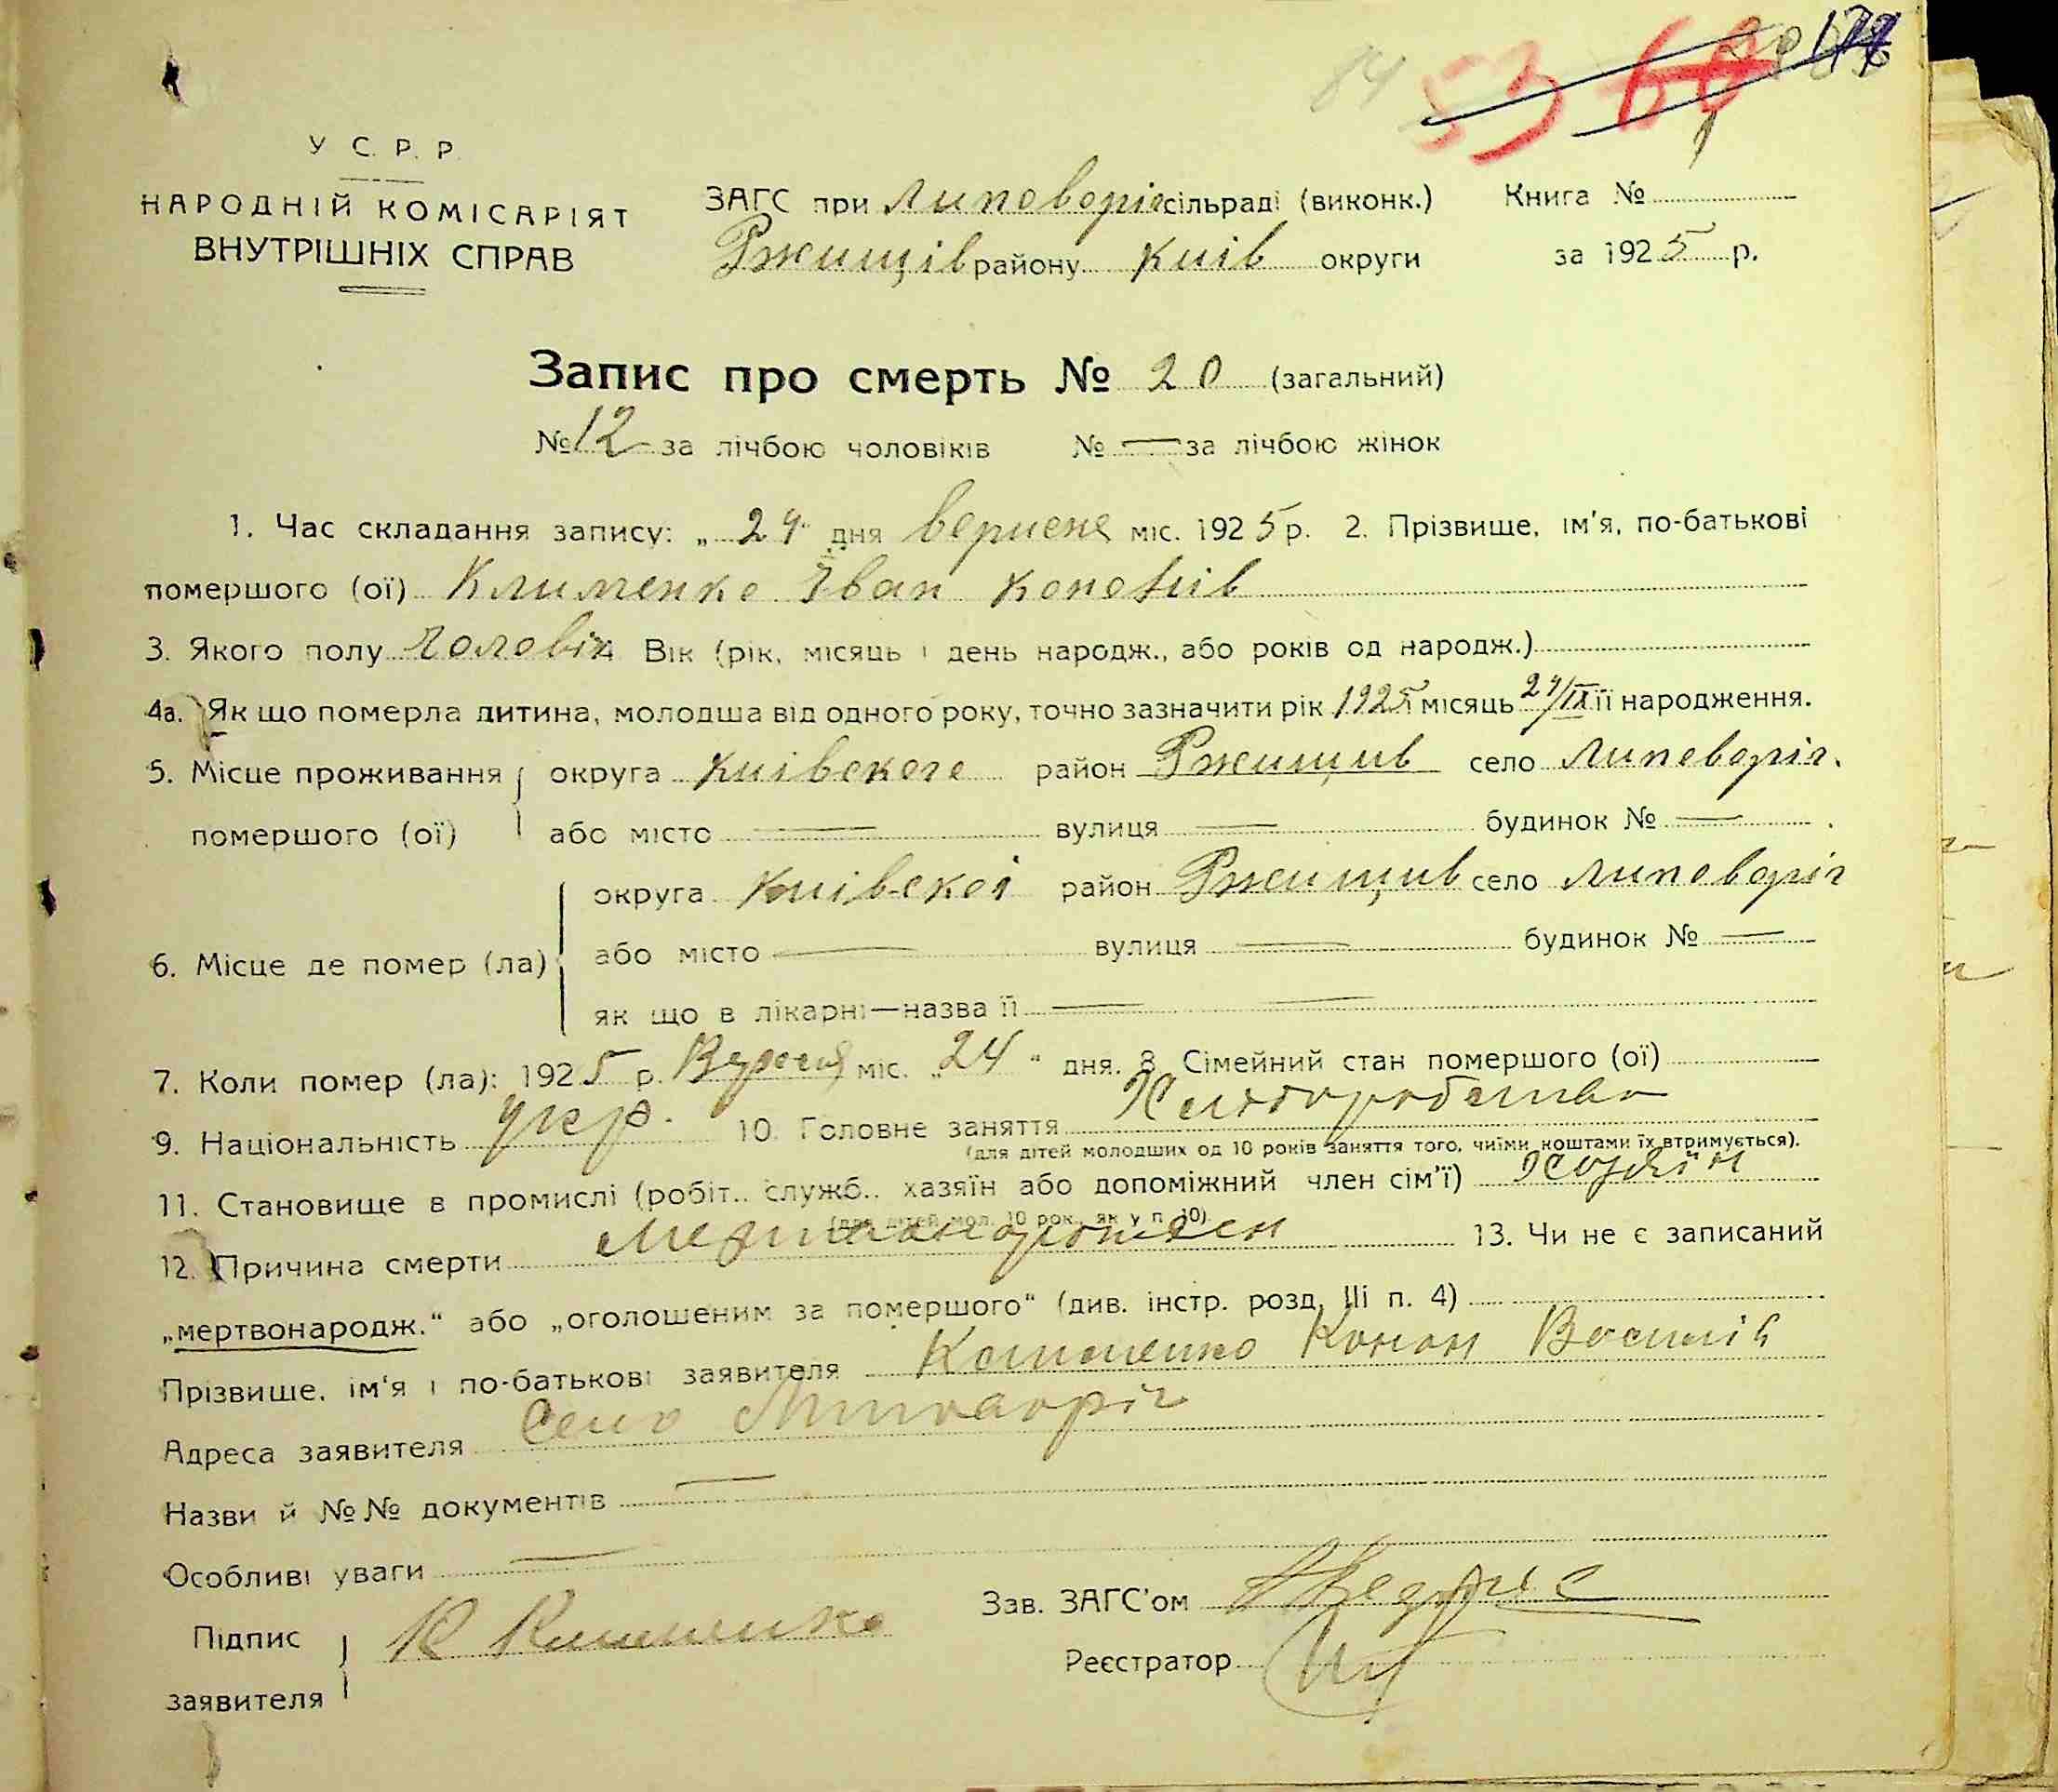 84 53
У С. Р. Р.
НАРОДНІЙ КОМІСАРІЯТ
ВНУТРІШНІХ СПРАВ
ЗАГС при Липоворіг сільраді (виконк.) Книга №
Ржищів району Киів округи за 1925 р.
Запис про смерть № 20 (загальний)
№ 12 за лічбою чоловіків № — за лічбою жінок
1. Час складання запису: „ 24 " дня міс. 1925 р. 2. Прізвище, ім'я, по-батькові
помершого (ої) Клименко Іван
3. Якого полу Чоловік 4 Вік (рік, місяць і день народж., або років од народж.)
4а. Як що померла дитина, молодша від одного року, точно зазначити рік 1925 місяць 24/IX її народження.
5. Місце проживання округа Киівского район Ржищив село Липоворіг.
помершого (ої) або місто — вулиця — будинок № —
6. Місце де помер (ла) округа Киівскоі район Ржищив село Липоворіг
або місто — вулиця — будинок № —
як що в лікарні—назва її —
7. Коли помер (ла): 1925 р. міс. „ 24 " дня. 8. Сімейний стан помершого (ої)
9. Національність укр. 10. Головне заняття Хліборобство
(для дітей молодших од 10 років заняття того, чиїми коштами їх втримується).
11. Становище в промислі (робіт., служб., хазяїн або допоміжний член сім'ї) Хазяїн
(для дітей мол. 10 рок., як у п. 10).
12. Причина смерти 13. Чи не є записаний
„мертвонародж." або „оголошеним за помершого" (див. інстр. розд. III п. 4)
Прізвище, ім'я і по-батькові заявителя Клименко Конон Василів
Адреса заявителя Село Липоворіг
Назви й №№ документів —
Особливі уваги —
Підпис К Клименко
заявителя
Зав. ЗАГС'ом
Реєстратор